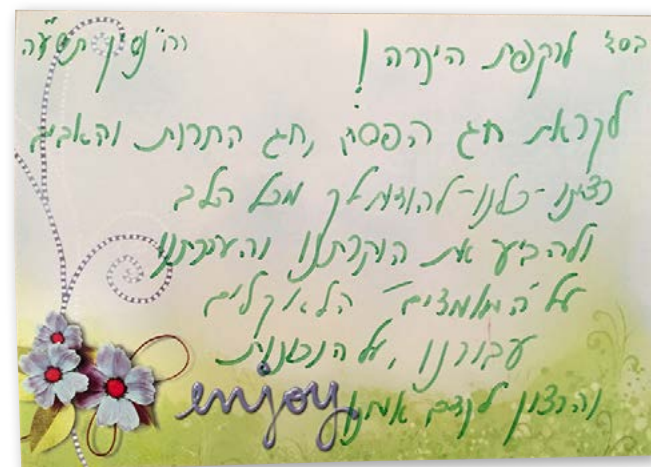 בסד לרקפת היקרה! רה"נ ניסן תשע"ה
לקראת חג הפסח, חג החרות והאביב
רצינו-כלנו-להודות לך מכל הלב
ולהביע את הוקרתנו והערכתנו
על "המאמצים" הלא קלים
עבורנו, על הנכונות
והרצון לקדם אותנו
enjoy